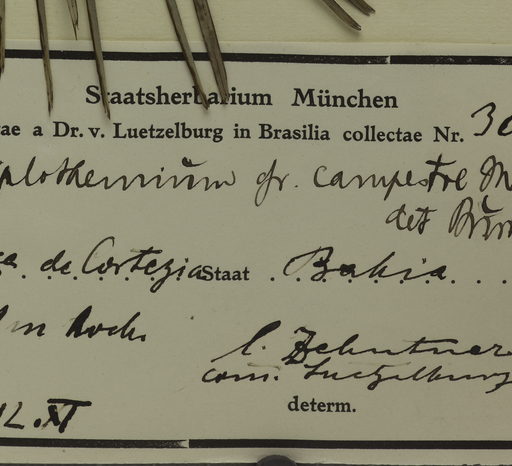 Staatsherbarium München
ae a Dr. v. Luetzelburg in Brasilia collectae Nr. 30
plothemium fr. campestre M
det Bur
de Cortezia Staat Bahia
l. Zehntner
com. Luetzelburg
determ.
12. XI